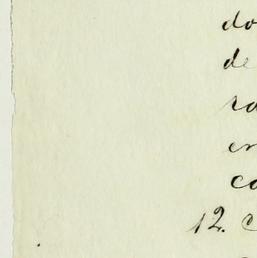 do
de
ra
en
co
12. C